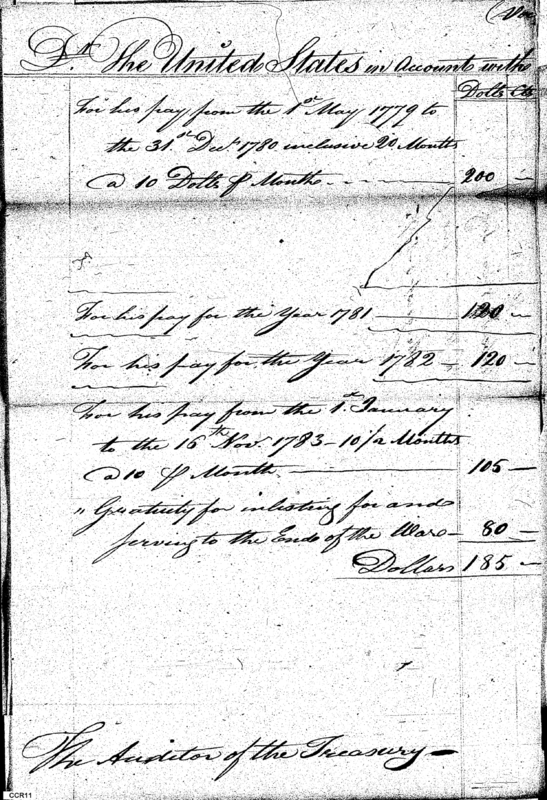 Dr. The United States in Account with
Dolls Cts
For his pay from the 1st May 1779 to
the 31st Decr. 1780 inclusive 20 Months
a 10 Dolls ⅌ Month - - - 200 —
For his pay for the Year 1781 — 120 —
For his pay for the Year 1782 — 120 —
For his pay from the 1st January
to the 16th Nov. 1783 - 10 1/2 Months
a 10 ⅌ Month — 105 —
" Gratuity for inlisting for and
serving to the End of the War — 80 —
Dollars 185 —
The Auditor of the Treasury —
CCR11